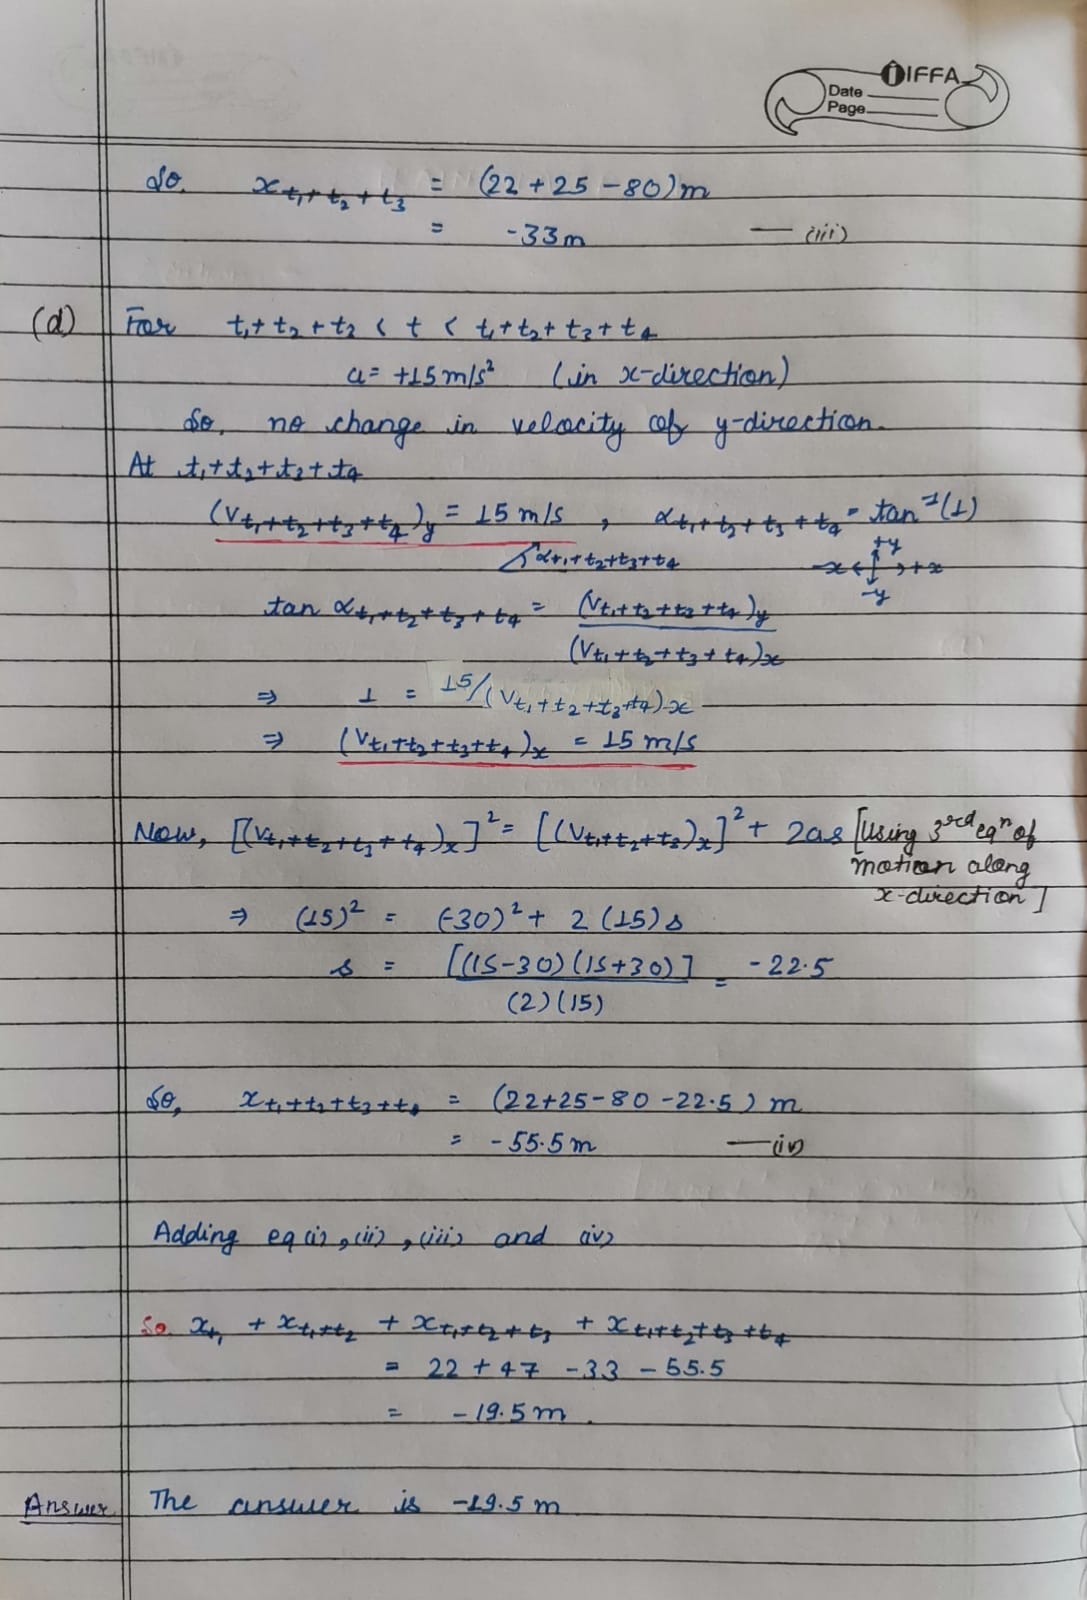 IFFA
Date
Page
So. x t₁+t₂+t₃ = (22+25-80)m
= -33m — (iii)
(d) For t₁+t₂+t₂ < t < t₁+t₂+t₃+t₄
a = +15m/s² (in x-direction)
So, no change in velocity of y-direction.
At t₁+t₂+t₃+t₄
(V t₁+t₂+t₃+t₄)y = 15 m/s , α t₁+t₂+t₃+t₄ = tan⁻¹(1)
α t₁+t₂+t₃+t₄
+y
-x +x
-y
tan α t₁+t₂+t₃+t₄ = (V t₁+t₂+t₃+t₄)y
(V t₁+t₂+t₃+t₄)x
⇒ 1 = 15/(V t₁+t₂+t₃+t₄)x
⇒ (V t₁+t₂+t₃+t₄)x = 15 m/s
Now, [(V t₁+t₂+t₃+t₄)x]² = [(V t₁+t₂+t₃)x]² + 2as [Using 3rd eqⁿ of
motion along
x-direction]
⇒ (15)² = (-30)² + 2(15)s
s = [(15-30)(15+30)] = -22.5
(2)(15)
So, x t₁+t₂+t₃+t₄ = (22+25-80-22.5) m
= -55.5m — (iv)
Adding eq (i), (ii), (iii) and (iv)
So. x t₁ + x t₁+t₂ + x t₁+t₂+t₃ + x t₁+t₂+t₃+t₄
= 22 + 47 - 33 - 55.5
= -19.5 m.
Answer The answer is -19.5 m